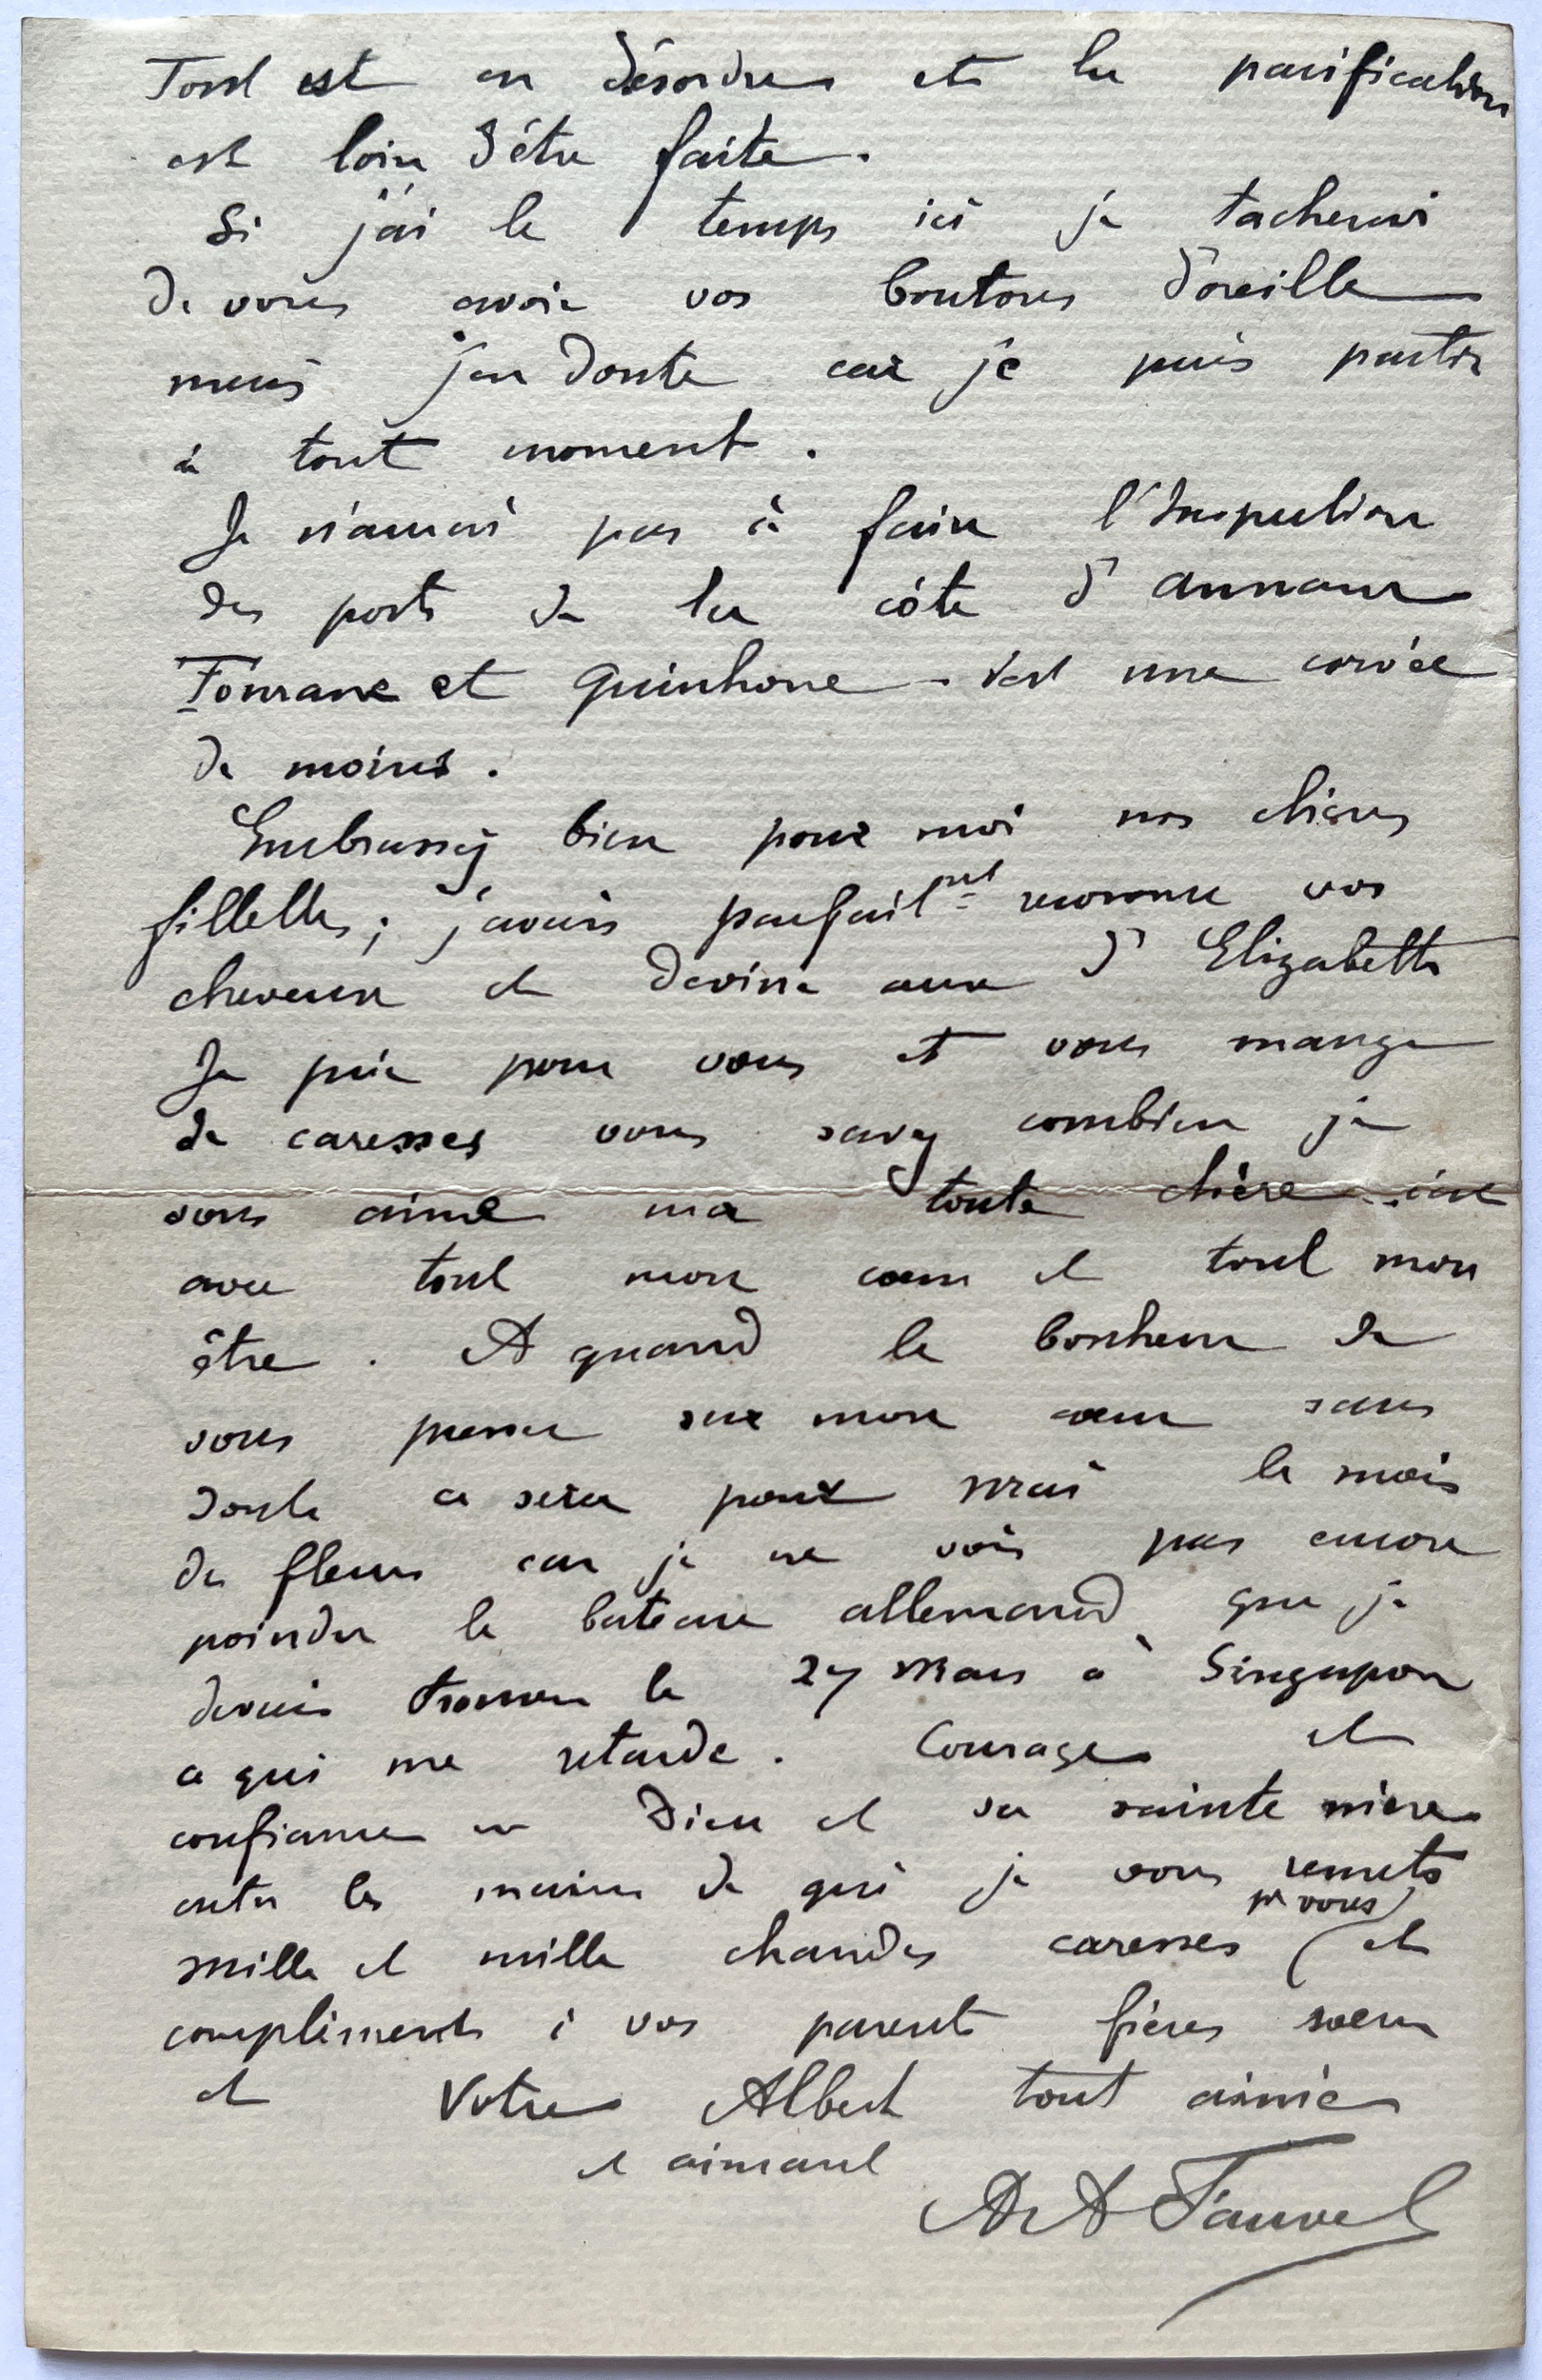 Tout est en désordre et la pacification
est loin d'être faite.
Si j'ai le temps ici je tacherai
de vous avoir vos boutons d'oreille
mais j'en doute car je puis partir
à tout moment.
Je n'aurai pas à faire l'Inspection
des ports de la côte d'annam
Tourane et Quinhone - c'est une corvée
de moins.
Embrassez bien pour moi nos chères
fillettes; j'avais parfait^mt reconnu vos
cheveux et deviné ceux d'Elizabeth
Je prie pour vous et vous mange
de caresses vous savez combien je
vous aime ma toute chère c'est
avec tout mon coeur et tout mon
être. A quand le bonheur de
vous presser sur mon coeur sans
doute ce sera pour mai le mois
des fleurs car je ne vois pas encore
poindre le bateau allemand que je
devais trouver le 27 Mars à Singapore
ce qui me retarde. Courage et
confiance en Dieu et sa sainte mère
entre les mains de qui je vous remets
pr vous
mille et mille chaudes caresses ( et
compliments à vos parents frères soeurs
et Votre Albert tout aimé
et aimant
A A Fauvel